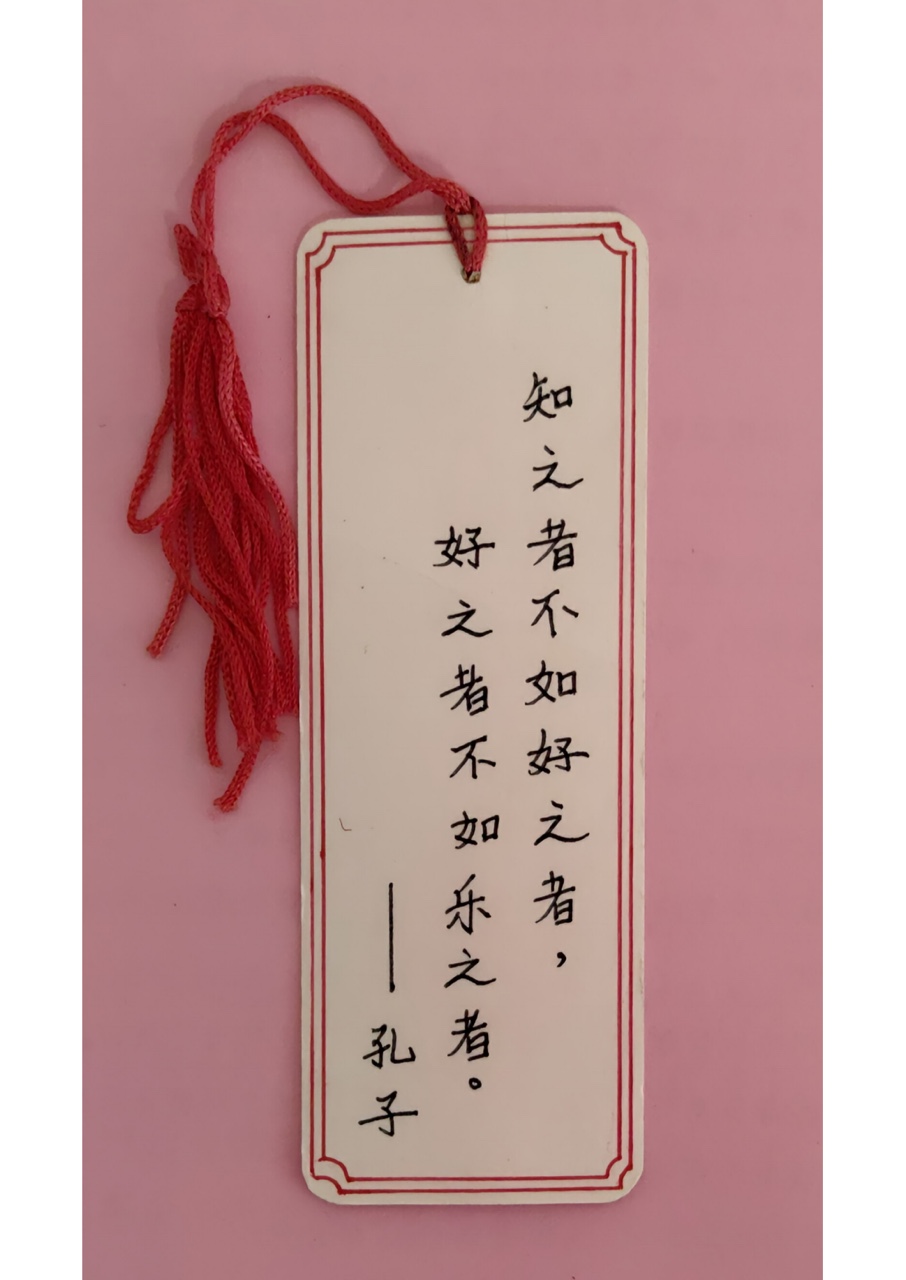 知之者不如好之者，
好之者不如乐之者。
——孔子